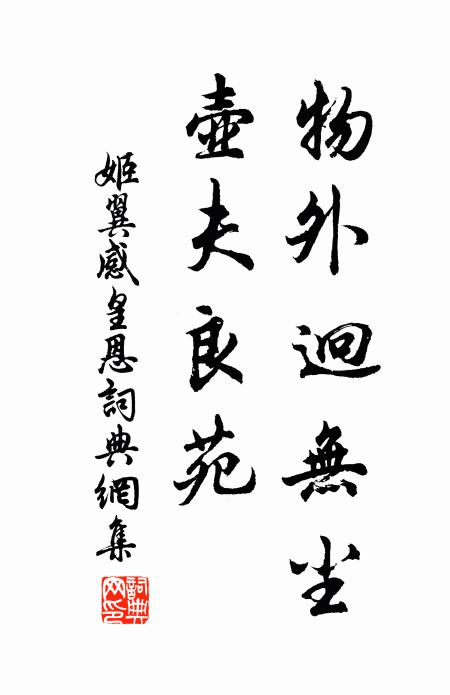 物外迥無尘
壺夫良苑
姬翼感皇恩詞典網集
詞典网印